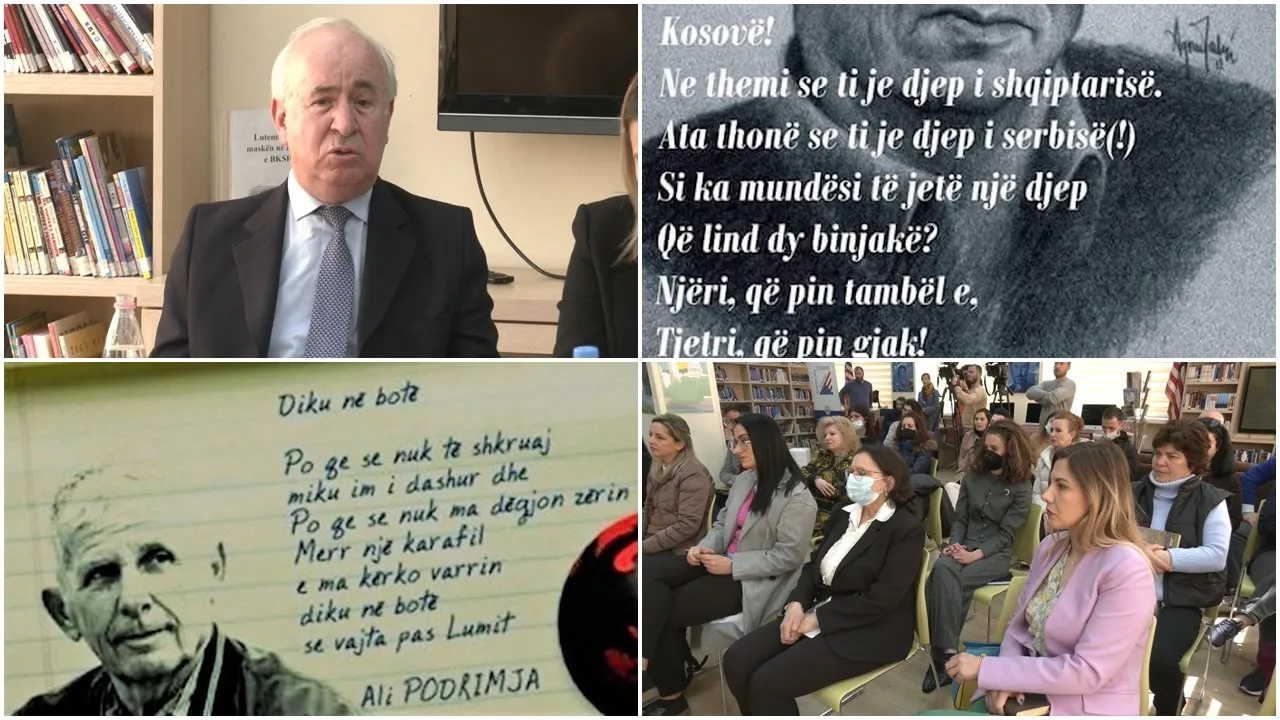 Lutem
maskën në
e BKSH
Kosovë!
Ne themi se ti je djep i shqiptarisë.
Ata thonë se ti je djep i serbisë(!)
Si ka mundësi të jetë një djep
Që lind dy binjakë?
Njëri, që pin tambël e,
Tjetri, që pin gjak!
Diku në botë
Po qe se nuk të shkruaj
miku im i dashur dhe
Po qe se nuk ma dëgjon zërin
Merr një karafil
e ma kërko varrin
diku në botë
se vajta pas Lumit
Ali PODRIMJA